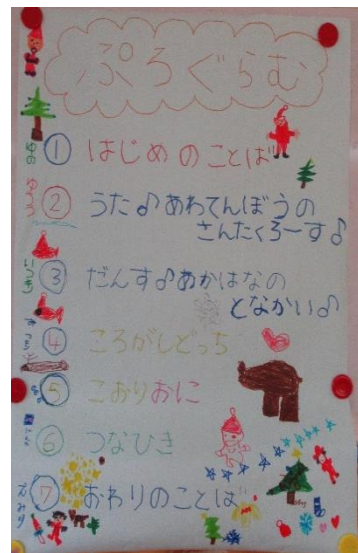 ぷろぐらむ
① はじめのことば
② うた♪あわてんぼうの
さんたくろーす♪
③ だんす♪あかはなの
となかい♪
④ ころがしどっち
⑤ こおりおに
⑥ つなひき
⑦ おわりのことば
ゆの
いつき
えみり